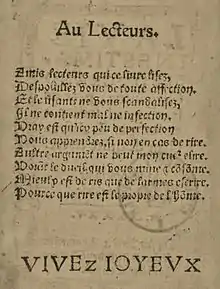 Au Lecteurs.
Amis lecteurs qui ce livre lisez,
Despouillez vous de toute affection.
Et le lisants ne vous scandalisez,
Il ne contient mal ne infection.
Vray est qu'icy peu de perfection
Vous apprendrez, si non en cas de rire.
Aultre argumēt ne peut mon cueur elire.
Voiāt le dueil, qui vous mine & cōsōme,
Mieulx est de ris que de larmes escrire.
Pource que rire est le propre de l'hōme.
VIVEZ IOYEVX